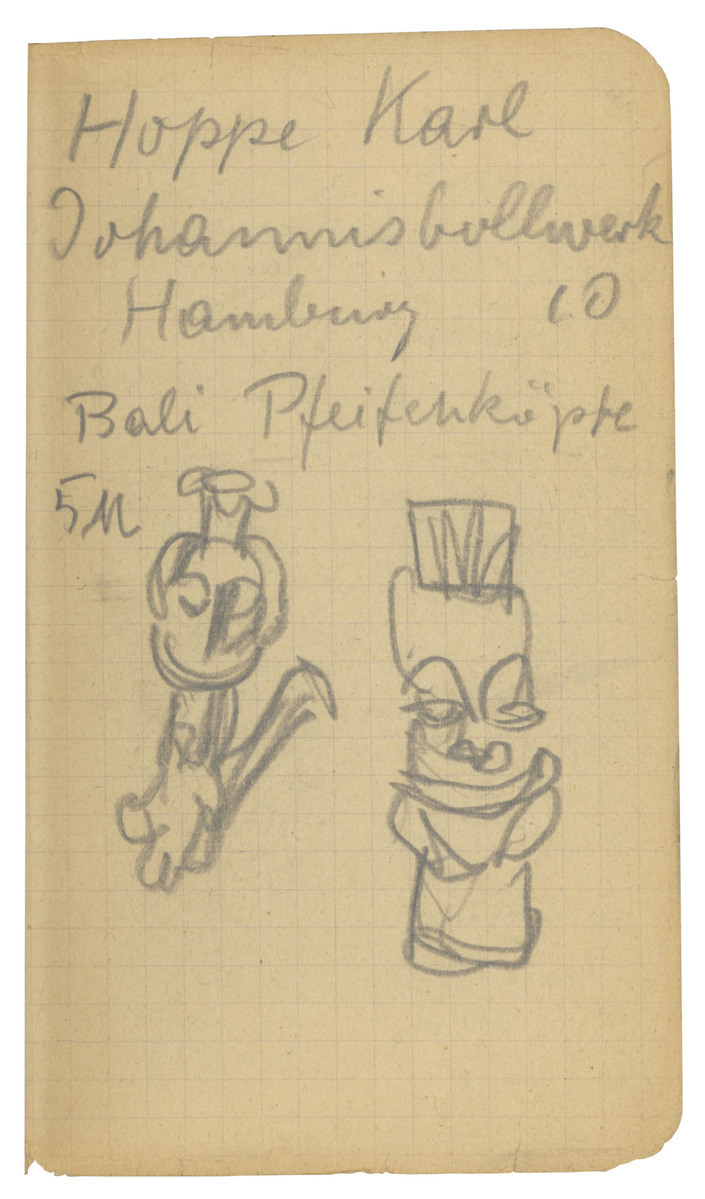 Hoppe Karl
Johannisbollwerk
Hamburg 10
Bali Pfeifenköpfe
5 M